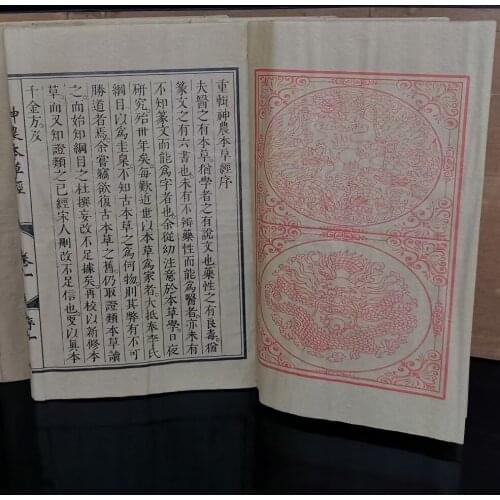 重輯神農本草經序
夫醫之有本草猶學者之有說文也藥性之有良毒猶
篆文之有六書也未有不辨藥性而能爲醫者亦未有
不知篆文而能爲字者也余從幼注意於本草學日夜
研究殆卅年矣每歎近世以本草爲家者大抵奉李氏
綱目以爲圭臬不知古本草之爲何物則其弊有不可
勝道者焉余嘗竊欲復古本草之舊仍取證類本草讀
之而始知綱目之杜撰妄改不足據矣再校以新修本
草而又知證類之已經宋人刪改不足信也更以真本
千金方及
神農本草經
卷一
序一